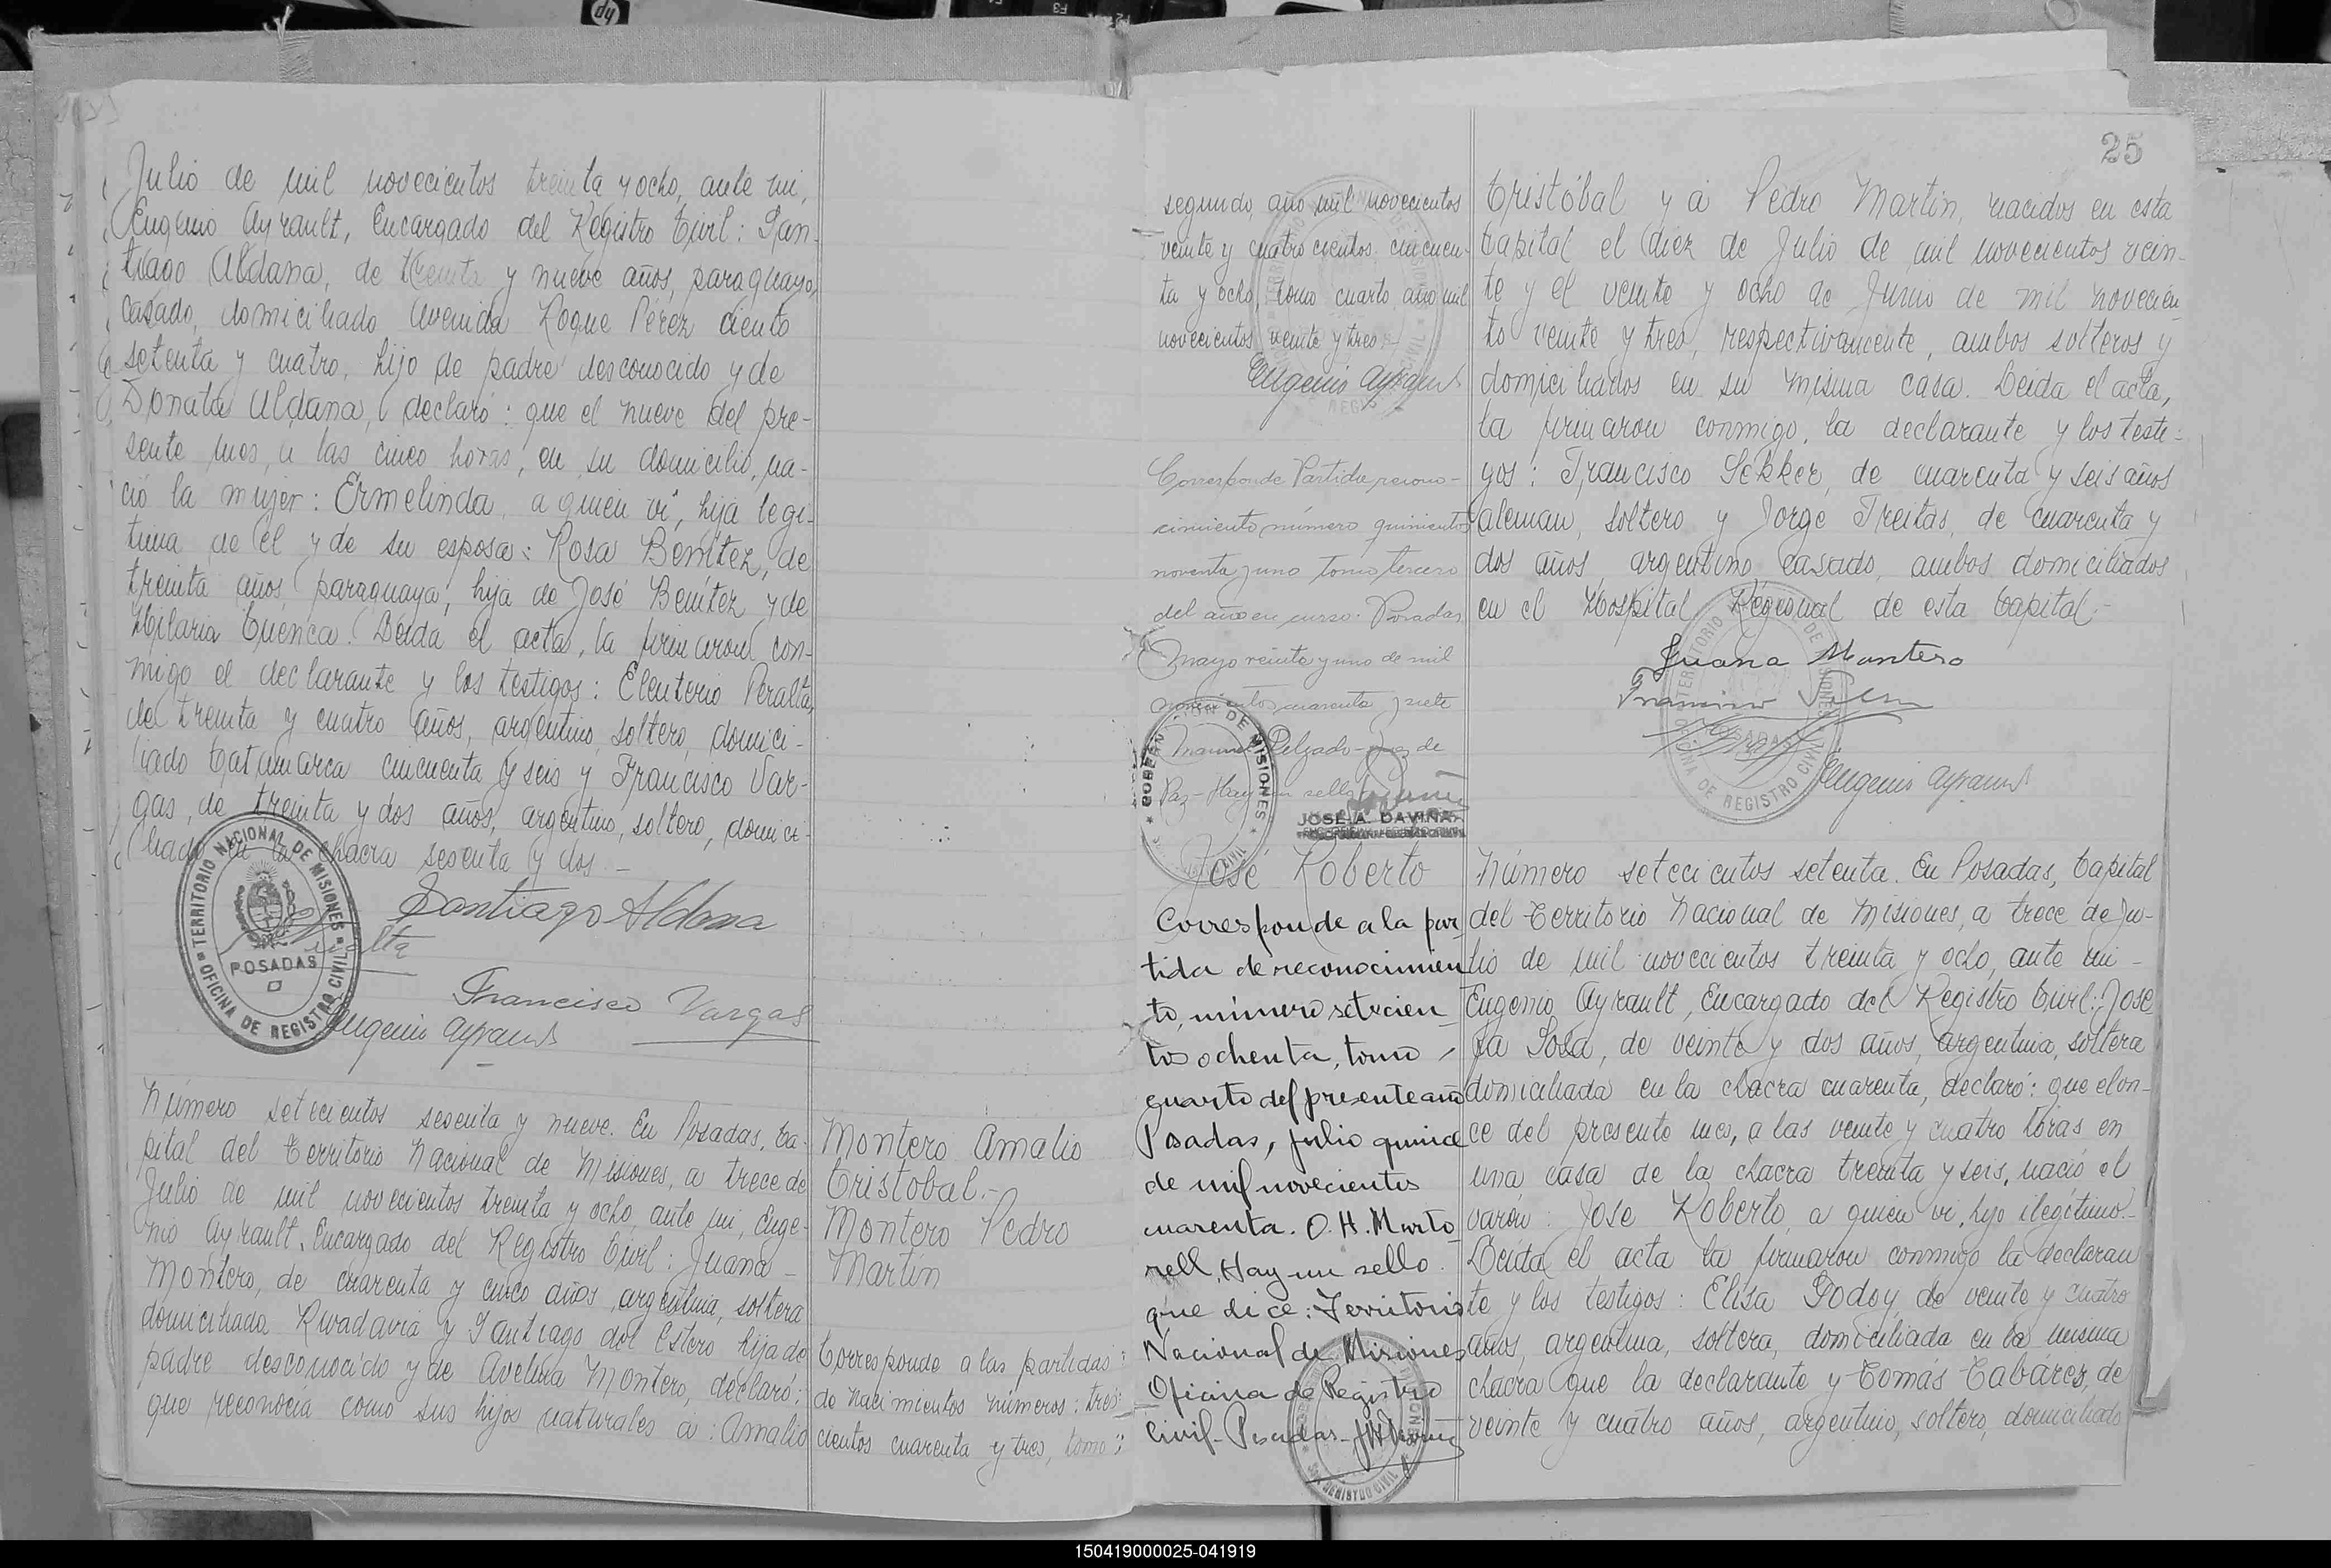 Julio de mil novecientos treinta y ocho, ante mi,
Eugenio Ayrault, Encargado del Registro Civil: San-
tiago Aldana, de treinta y nueve años, paraguayo,
casado, domiciliado Avenida Roque Pérez ciento
setenta y cuatro, hijo de padre desconocido y de
Donata Aldana, declaró: que el nueve del pre-
sente mes, a las cinco horas, en su domicilio, na-
ció la mujer: Ermelinda, a quien vi, hija legi-
tima de él y de su esposa: Rosa Benítez, de
treinta años, paraguaya, hija de José Benítez y de
Hilaria Cuenca. Leida el acta, la firmaron con-
migo el declarante y los testigos: Eleuterio Peralta,
de treinta y cuatro años, argentino, soltero, domici-
liado Catamarca cincuenta y seis y Francisco Var-
gas, de treinta y dos años, argentino, soltero, domici-
liado en la chacra sesenta y dos.-
TERRITORIO NACIONAL DE MISIONES
POSADAS
OFICINA DE REGISTRO CIVIL
Santiago Aldana
Francisco Vargas
Eugenio Ayrault
Número setecientos sesenta y nueve. En Posadas, Ca-
pital del Territorio Nacional de Misiones, a trece de
Julio de mil novecientos treinta y ocho, ante mi, Euge-
nio Ayrault, Encargado del Registro Civil: Juana -
Montero, de cuarenta y cinco años, argentina, soltera
domiciliada Rivadavia y Santiago del Estero hija de
padre desconocido y de Avelina Montero, declaró:
que reconocía como sus hijos naturales a: Amalio
Montero Amalio
Cristobal.-
Montero Pedro
Martín
Corresponde a las partidas
de nacimientos números: tres-
cientos cuarenta y tres, tomo
segundo, año mil novecientos
veinte y cuatro cientos cincuen-
ta y ocho, tomo cuarto, año mil
novecientos veinte y tres.-
Eugenio Ayrault
Corresponde Partida recono-
cimiento número quinientos
noventa y uno tomo tercero
del año en curso. Posadas
Mayo veinte y uno de mil
novecientos cuarenta y siete
Manuel Delgado - Juez de
Paz - Hay un sello
JOSÉ A. DAVIÑA
José Roberto
Corresponde a la par-
tida de reconocimien-
to, número setecien-
tos ochenta, tomo
cuarto del presente año
Posadas, julio quince
de mil novecientos
cuarenta. O. H. Marto
rell, Hay un sello.
que dice: Territorio
Nacional de Misiones
Oficina de Registro
Civil - Posadas -
25
Cristóbal y a Pedro Martín, nacidos en esta
Capital el diez de Julio de mil novecientos vein-
te y el veinte y ocho de Junio de mil novecien
to veinte y tres, respectivamente, ambos solteros y
domiciliados en su misma casa. Leida el acta,
la firmaron conmigo, la declarante y los testi-
gos: Francisco Sekker, de cuarenta y seis años
aleman, soltero y Jorge Freitas, de cuarenta y
dos años, argentino casado, ambos domiciliados
en el Hospital Regional de esta Capital.-
Juana Montero
Eugenio Ayrault
Número setecientos setenta. En Posadas, Capital
del Territorio Nacional de Misiones, a trece de Ju-
lio de mil novecientos treinta y ocho, ante mi -
Eugenio Ayrault, Encargado del Registro Civil: Jose
fa Sosa, de veinte y dos años, argentina, soltera
domiciliada en la chacra cuarenta, declaró: que el on-
ce del presente mes, a las veinte y cuatro horas en
una casa de la chacra treinta y seis, nació el
varón: José Roberto, a quien vi, hijo ilegítimo.-
Leida el acta la firmaron conmigo la declaran
te y los testigos: Elisa Godoy, de veinte y cuatro
años, argentina, soltera, domiciliada en la misma
chacra que la declarante y Tomás Cabarez, de
veinte y cuatro años, argentino, soltero, domiciliado
150419000025-041919